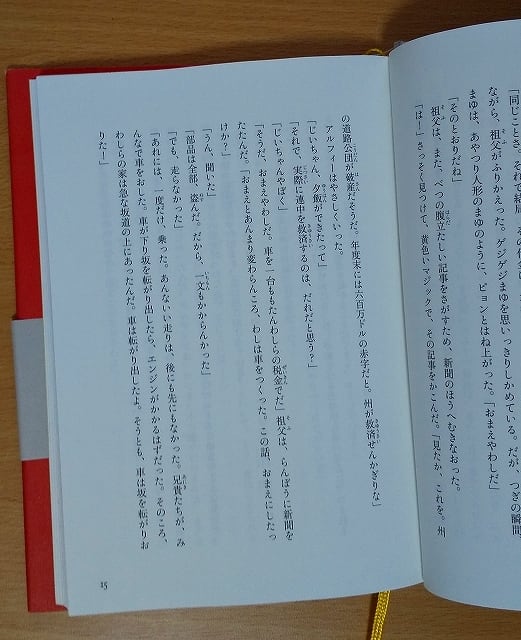 「同じことさ。それで結局
ながら、祖父がふりかえった。ゲジゲジまゆを思いっきりしかめている。だが、つぎの瞬間、
まゆは、あやつり人形のまゆのように、ピョンとはね上がった。「おまえやわしだ」
「そのとおりだね」
祖父は、また、べつの腹立たしい記事をさがすため、新聞のほうへむきなおった。
「はー」さっそく見つけて、黄色いマジックで、その記事をかこんだ。「見たか、これを。州
の道路公団が破産だそうだ。年度末には六百万ドルの赤字だと。州が救済せんかぎりな」
アルフィーはやさしくいった。
「じいちゃん、夕飯ができたって」
「それで、実際に連中を救済するのは、だれだと思う?」
「じいちゃんやぼく」
「そうだ、おまえやわしだ。車を一台ももたんわしらの税金でだ」祖父は、らんぼうに新聞を
たたんだ。「おまえとあんまり変わらんころ、わしは車をつくった。この話、おまえにしたっ
けか?」
「うん、聞いた」
「部品は全部、盗んだ。だから、一文もかからんかった」
「でも、走らなかった」
「あれには、一度だけ、乗った。あんないい走りは、後にも先にもなかった。兄貴たちが、み
んなで車をおした。車が下り坂を転がり出したら、エンジンがかかるはずだった。そのころ、
わしらの家は急な坂道の上にあったんだ。車は転がり出したよ。そうとも、車は坂を転がりお
りたー」
15